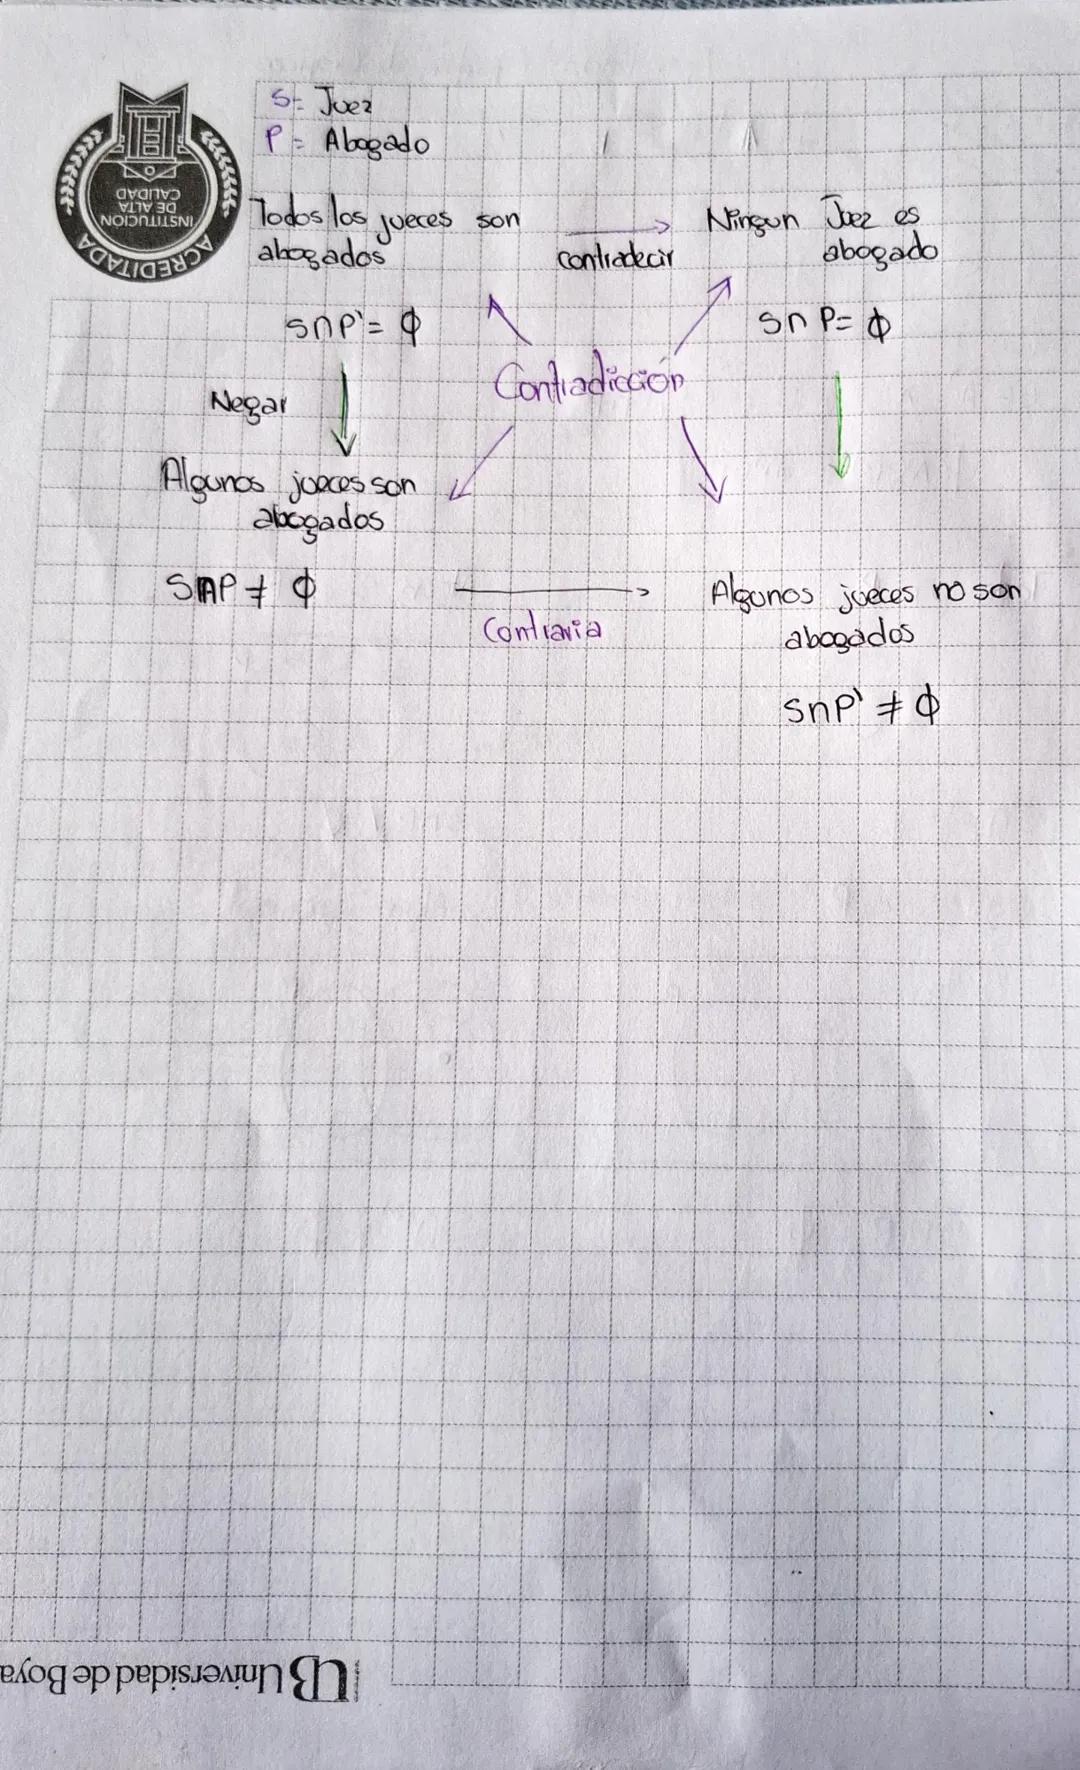 S= Juez
P= Abogado
ACREDITADA
INSTITUCIÓN
DE ALTA
CALIDAD
Todos los jueces son
abogados
contradecir
Ningun Juez es
abogado
S∩P'= ϕ
S∩P= ϕ
Contradicción
Negar
Algunos jueces son
abogados
S∩P ≠ ϕ
Contraria
Algunos jueces no son
abogados
S∩P' ≠ ϕ
UB Universidad de Boya